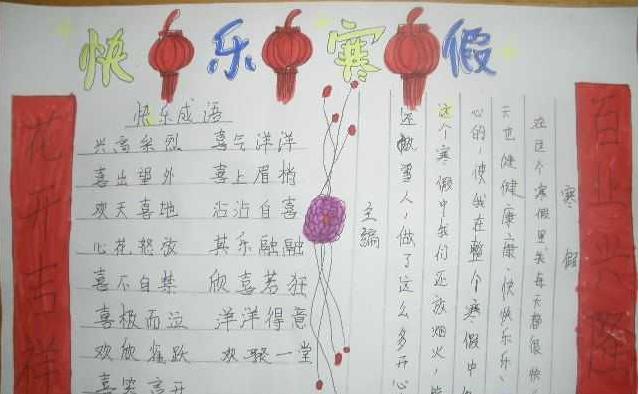 快乐寒假
花开吉祥
百业兴隆
快乐成语
兴高采烈 喜气洋洋
喜出望外 喜上眉梢
欢天喜地 沾沾自喜
心花怒放 其乐融融
喜不自禁 欣喜若狂
喜极而泣 洋洋得意
欢欣雀跃 欢聚一堂
喜笑言开
寒假
在这个寒假里,我每天都很快
天也健健康康、快快乐乐、
心的,使我在整个寒假中
这个寒假中我们还放烟火,
还做雪人,做了这么多开心
主编